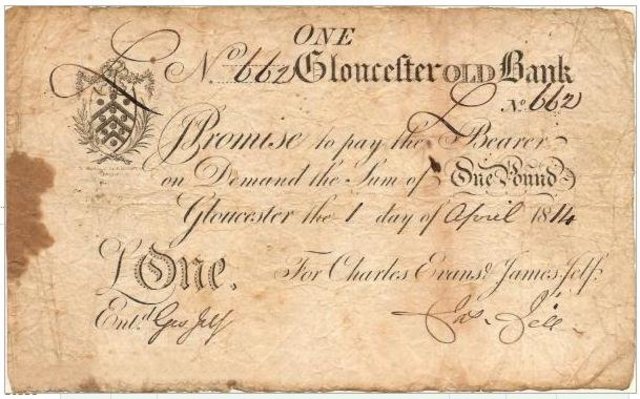 ONE
No 662 Gloucester OLD Bank
L No 662
I Promise to pay the Bearer
on Demand the Sum of One Pound
Gloucester the 1 day of April 1814
£One. For Charles Evans & James Jelf.
Entd. Geo Jelf Jas. Jelf